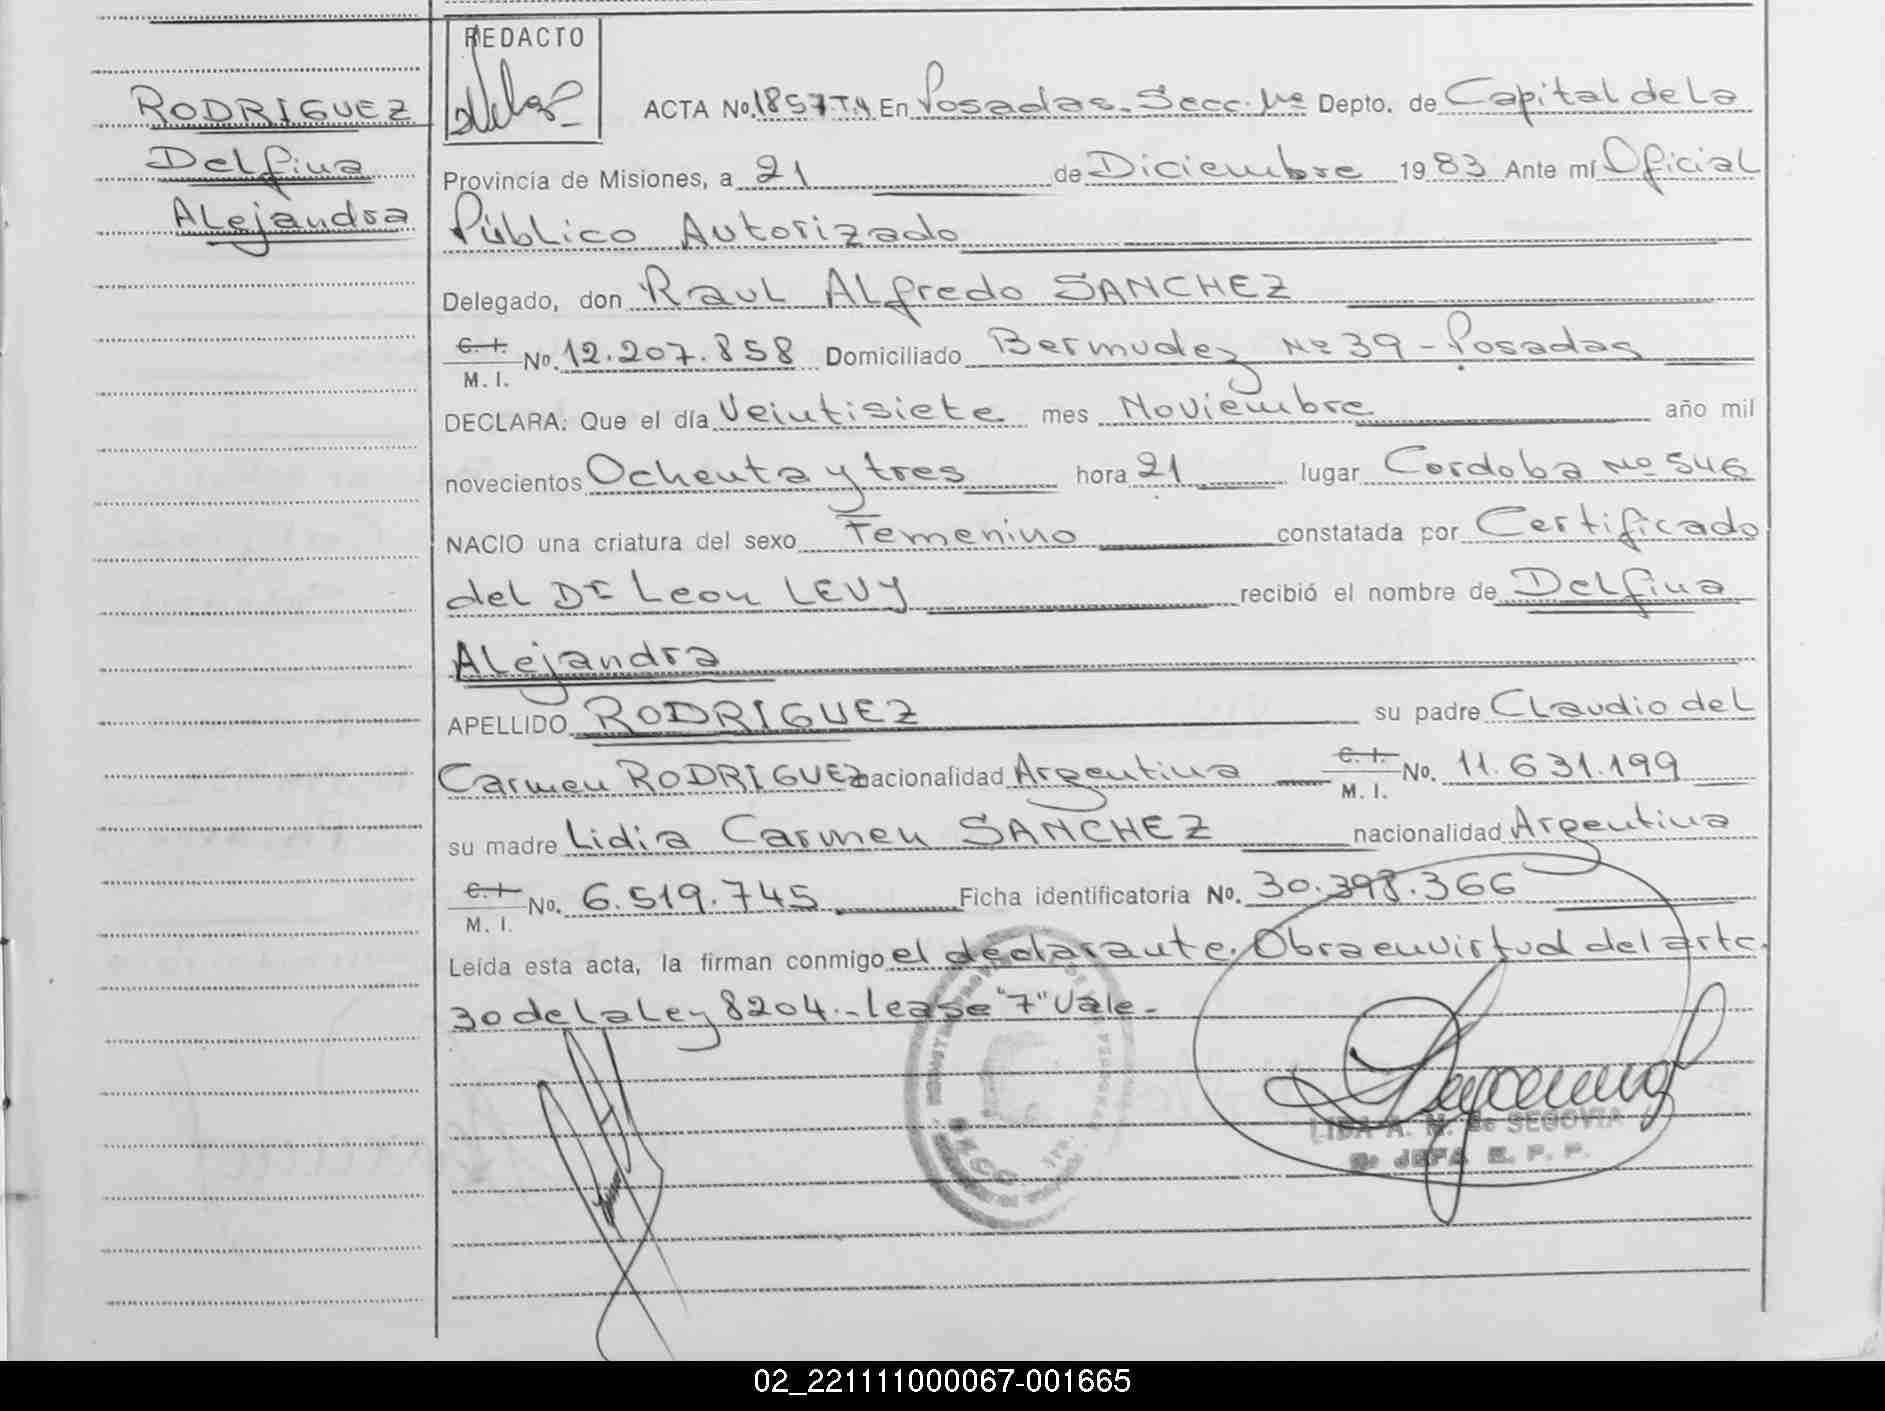 REDACTO
RODRIGUEZ
Delfina
Alejandra
ACTA No. 1857.TA En Posadas. Secc. 1ra Depto. de Capital de La
Provincia de Misiones, a 21 de Diciembre 1983 Ante mí Oficial
Público Autorizado
Delegado, don Raul Alfredo SANCHEZ
C. I. M. I. No. 12.207.858 Domiciliado Bermudez Nº 39 - Posadas
DECLARA: Que el día Veintisiete mes Noviembre año mil
novecientos Ochenta y tres hora 21 lugar Cordoba Nº 546
NACIO una criatura del sexo Femenino constatada por Certificado
del Dr Leon LEVY recibió el nombre de Delfina
Alejandra
APELLIDO RODRIGUEZ su padre Claudio del
Carmen RODRIGUEZ nacionalidad Argentina C. I. M. I. No. 11.631.199
su madre Lidia Carmen SANCHEZ nacionalidad Argentina
C. I. M. I. No. 6.519.745 Ficha identificatoria No. 30.398.366
Leída esta acta, la firman conmigo el declarante. Obra en virtud del artc.
30 de La Ley 8204.- lease "7" Vale-
LIDA A. M. de SEGOVIA
JEFA E. P. P.
02_221111000067-001665